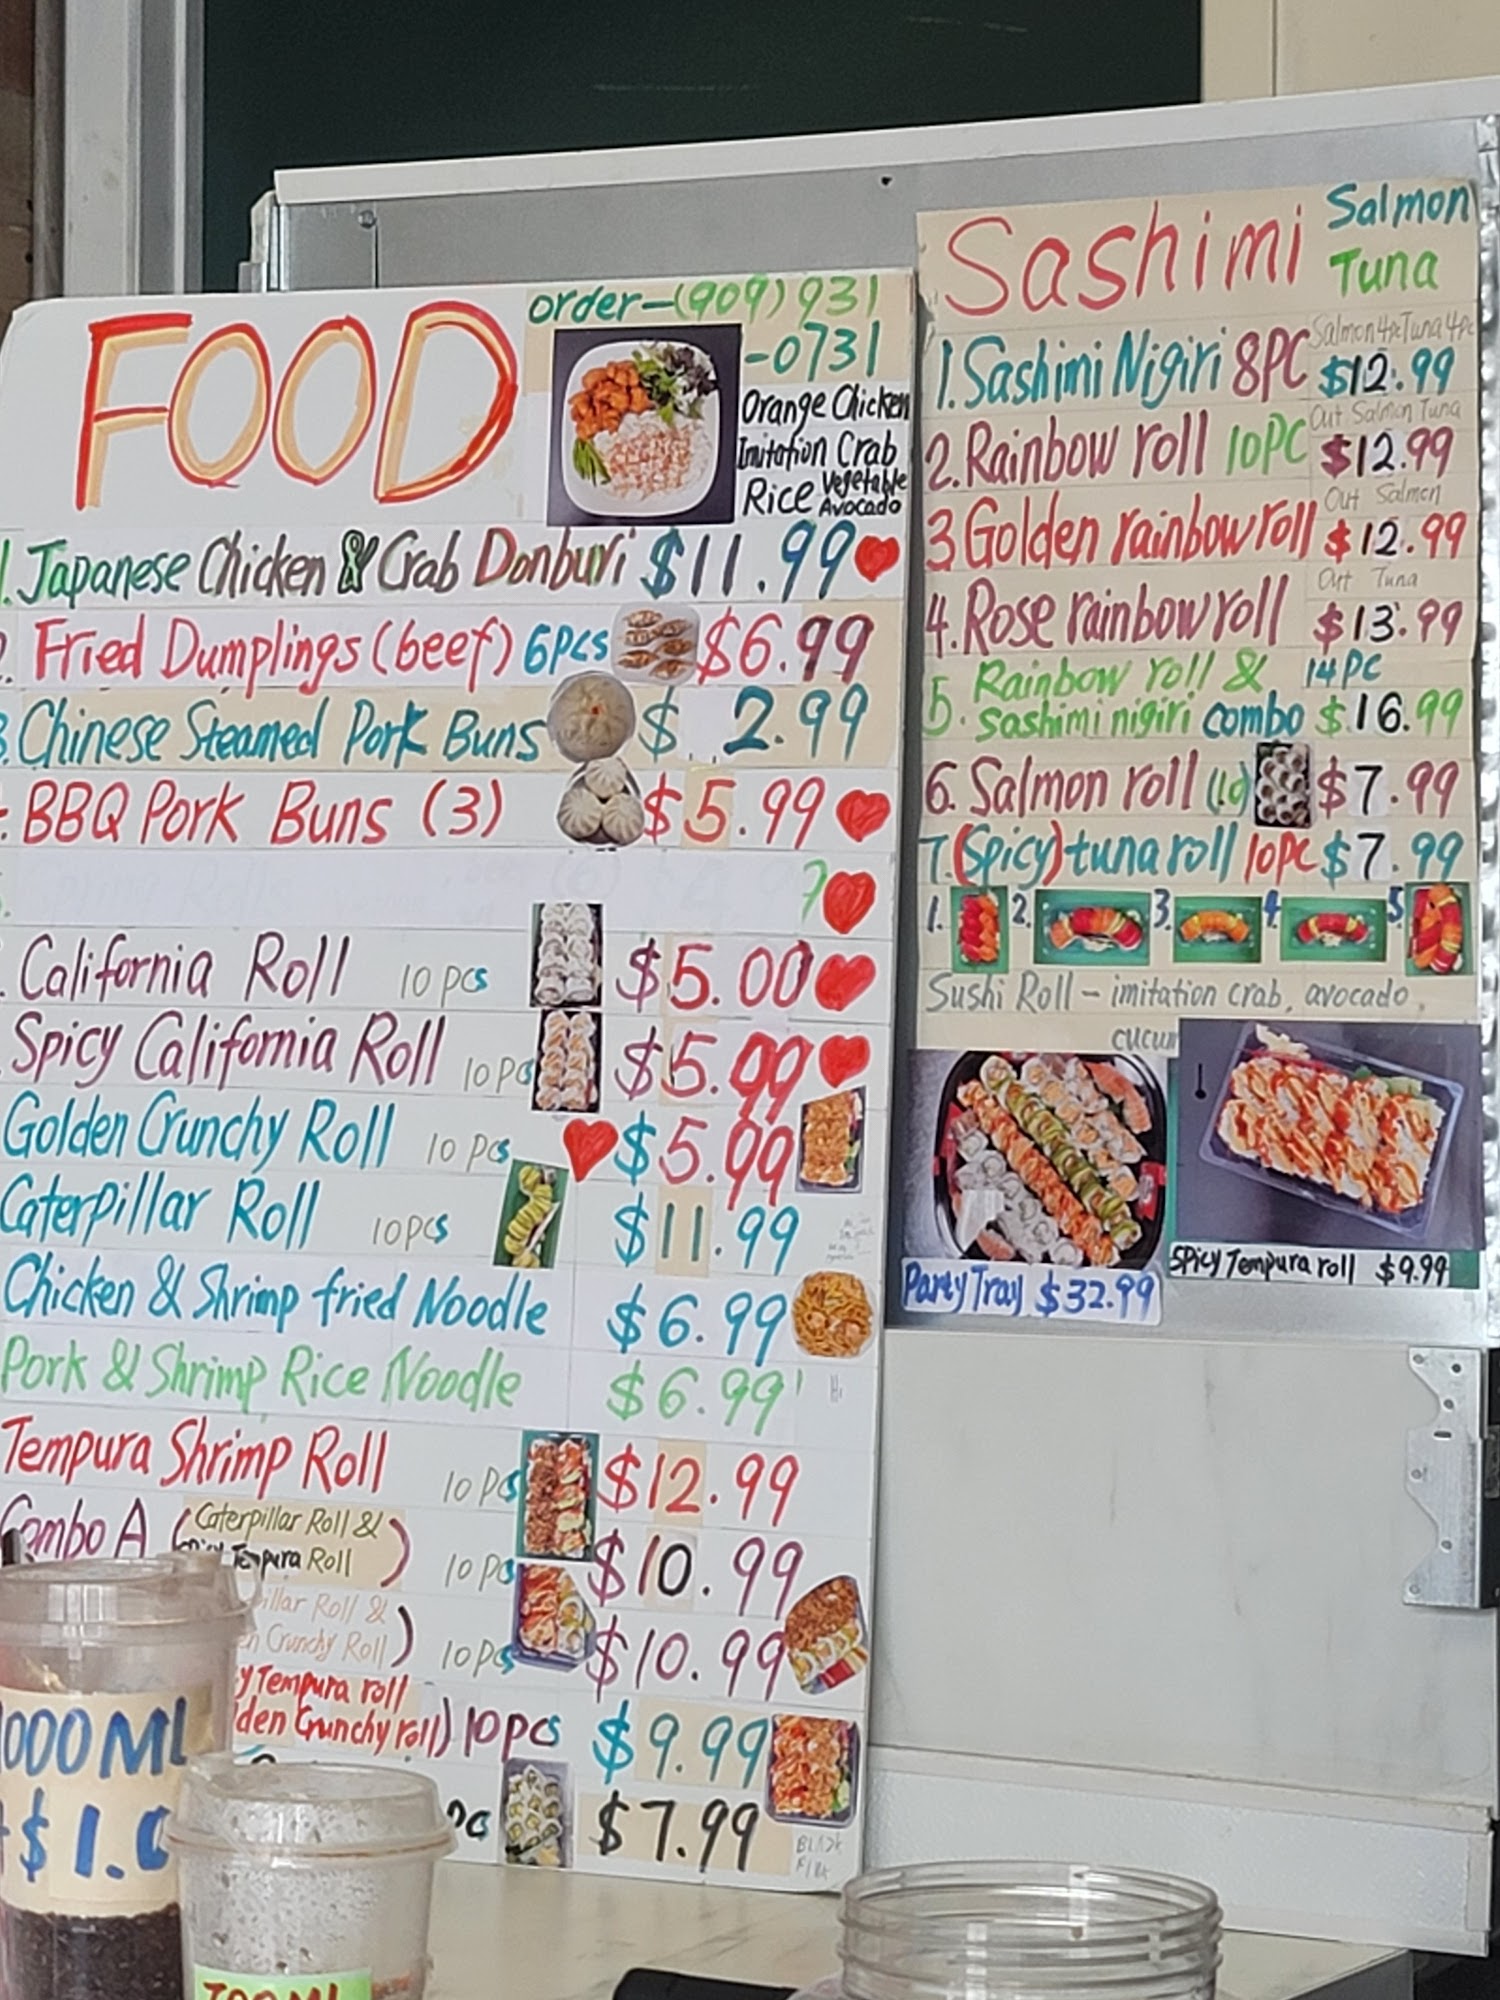 FOOD
order-(909)931
-0731
Orange Chicken
Imitation Crab
Rice Vegetable
Avocado
1. Japanese Chicken & Crab Donburi $11.99
Fried Dumplings (beef) 6pcs $6.99
3. Chinese Steamed Pork Buns $ 2.99
BBQ Pork Buns (3) $5.99
California Roll 10 pcs $5.00
Spicy California Roll 10 pc $5.99
Golden Crunchy Roll 10 pcs $5.99
Caterpillar Roll 10 pcs $11.99
Chicken & Shrimp fried Noodle $6.99
Pork & Shrimp Rice Noodle $6.99
Tempura Shrimp Roll 10 pcs $12.99
Combo A (Caterpillar Roll &
Tempura Roll) 10 pc $10.99
illar Roll &
en Crunchy Roll) 10 pcs $10.99
y Tempura roll
lden Crunchy roll) 10pcs $9.99
pc $7.99
Sashimi Salmon
Tuna
Salmon 4pc Tuna 4pc
1. Sashimi Nigiri 8PC $12.99
Out Salmon Tuna
2. Rainbow roll 10PC $12.99
Out Salmon
3 Golden rainbow roll $12.99
Out Tuna
4. Rose rainbow roll $13.99
5. Rainbow roll & 14PC
sashimi nigiri combo $16.99
6. Salmon roll (10) $7.99
7. (Spicy) tuna roll 10pc $7.99
1. 2. 3. 4. 5.
Sushi Roll - imitation crab, avocado,
cucum
Party Tray $32.99
Spicy Tempura roll $9.99
000ML
$1.0
700ML